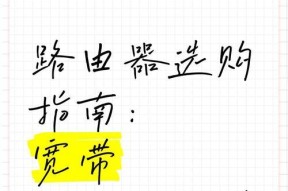 路由器选购
指南：
宽带